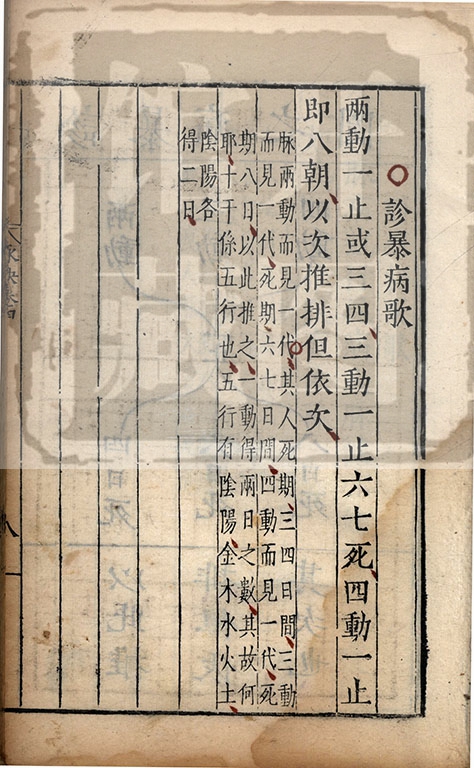 診暴病歌
兩動一止或三四三動一止六七死四動一止
即八朝以次推排但依次
脉兩動而見一代其人死期三四日間三動
而見一代死期六七日間四動而見一代死
期八日以此推之一動得兩日之數其故何
耶十干係五行也五行有陰陽金木水火土
陰陽各
得二日